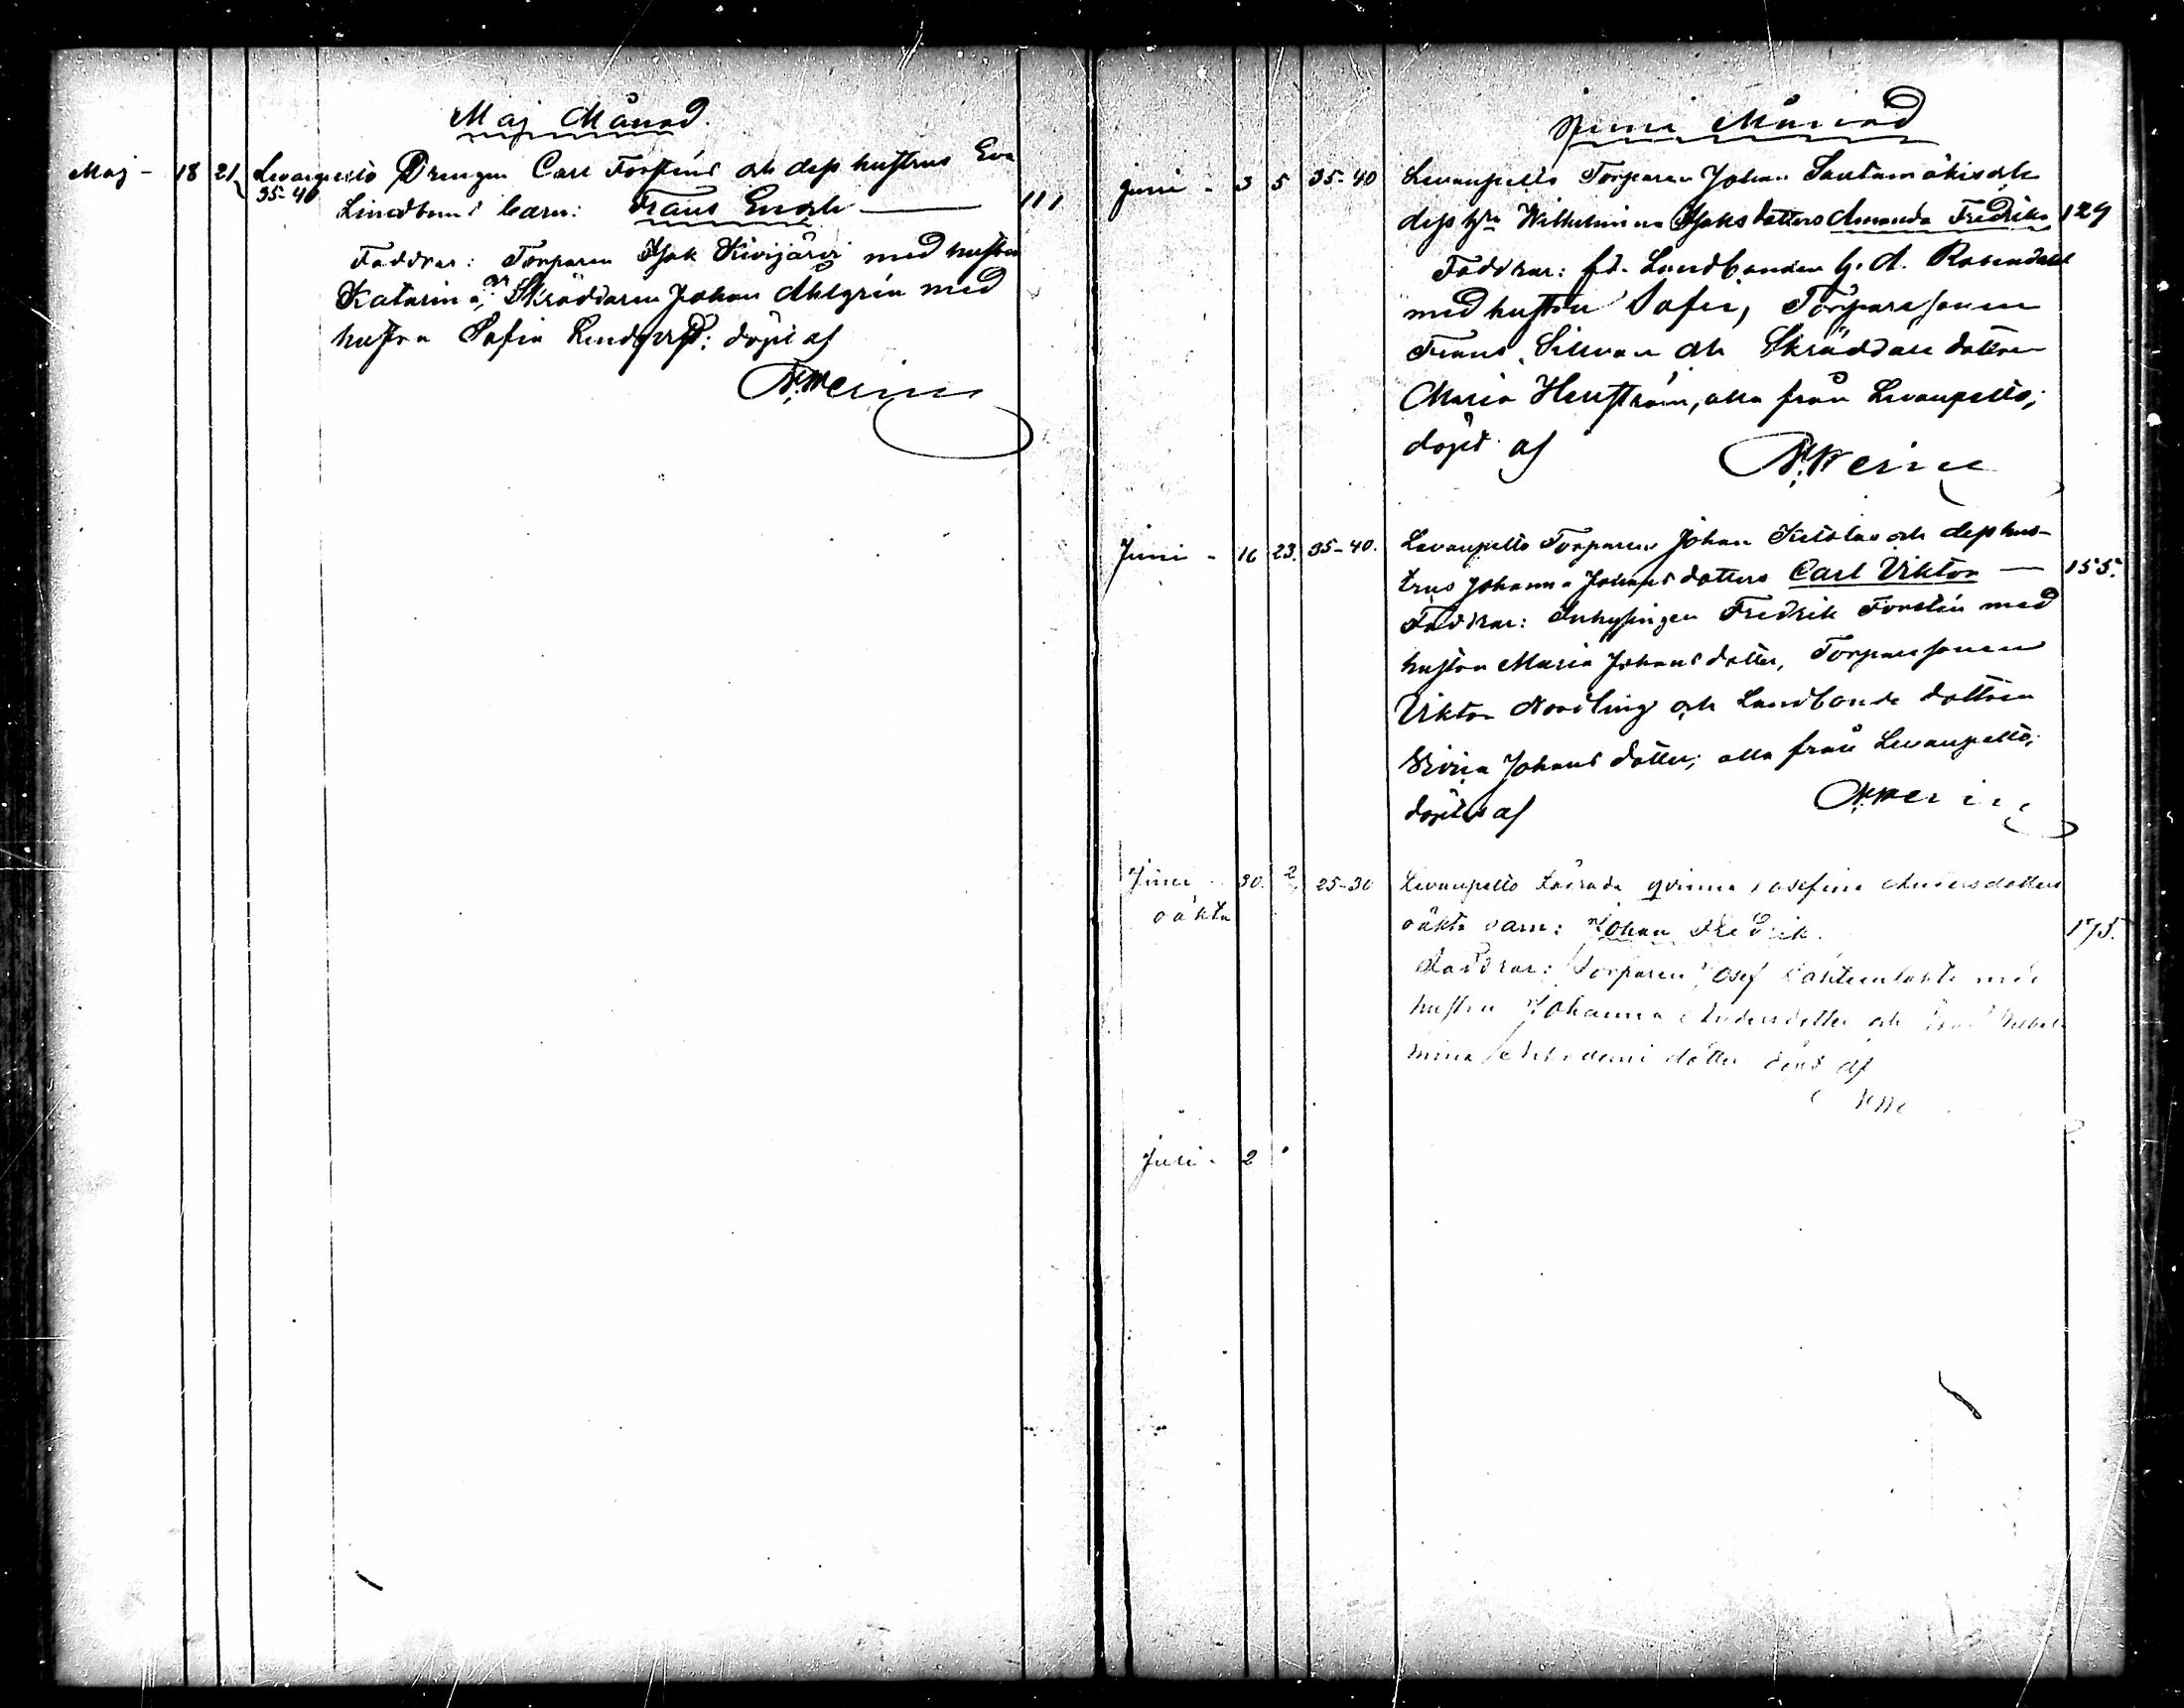 Maj Månad.
Maj - 18 21 Levanpelto Drengen Carl Forsténs och dess hustrus Eva
35-40 Lindboms barn: Frans Enoch — 111
Faddrar: Torparen Isak Kivijärvi med hustru
Katarina, Skräddaren Johan Ahlgrén med
hustru Sofia Lindqvist; döpt af
Juni Månad
Juni - 3 5 35-40 Levanpelto Torparen Johan Santamäkis och
dess h:ru Wilhelmina Isaksdotters Amanda Fredrika 129
Faddrar: f.d. Landbonden G. A. Rosendahl
med hustru Sofia, Torparesonen
Frans Silvan och Skräddare dottren
Maria Henström, alla från Levanpelto;
döpt af
Juni - 16 23. 35-40. Levanpelto Torparens Johan och dess hus-
trus Johanna Johansdotters Carl Viktor — 155.
Faddrar: Inhysingen Fredrik Forstén med
hustru Maria Johansdotter, Torparesonen
Viktor Nordling och Landbonde dottren
Johansdotter; alla från Levanpelto;
döptes af
Juni - 30. 2 25-30 Levanpelto qvinna Josefina Andersdotters
oäkta oäkta barn: Johan Fredrik. 175.
Faddrar: Torparen Josef med
hustru Johanna Andersdotter och Wilhel-
mina dotter döpt af
Juli - 2